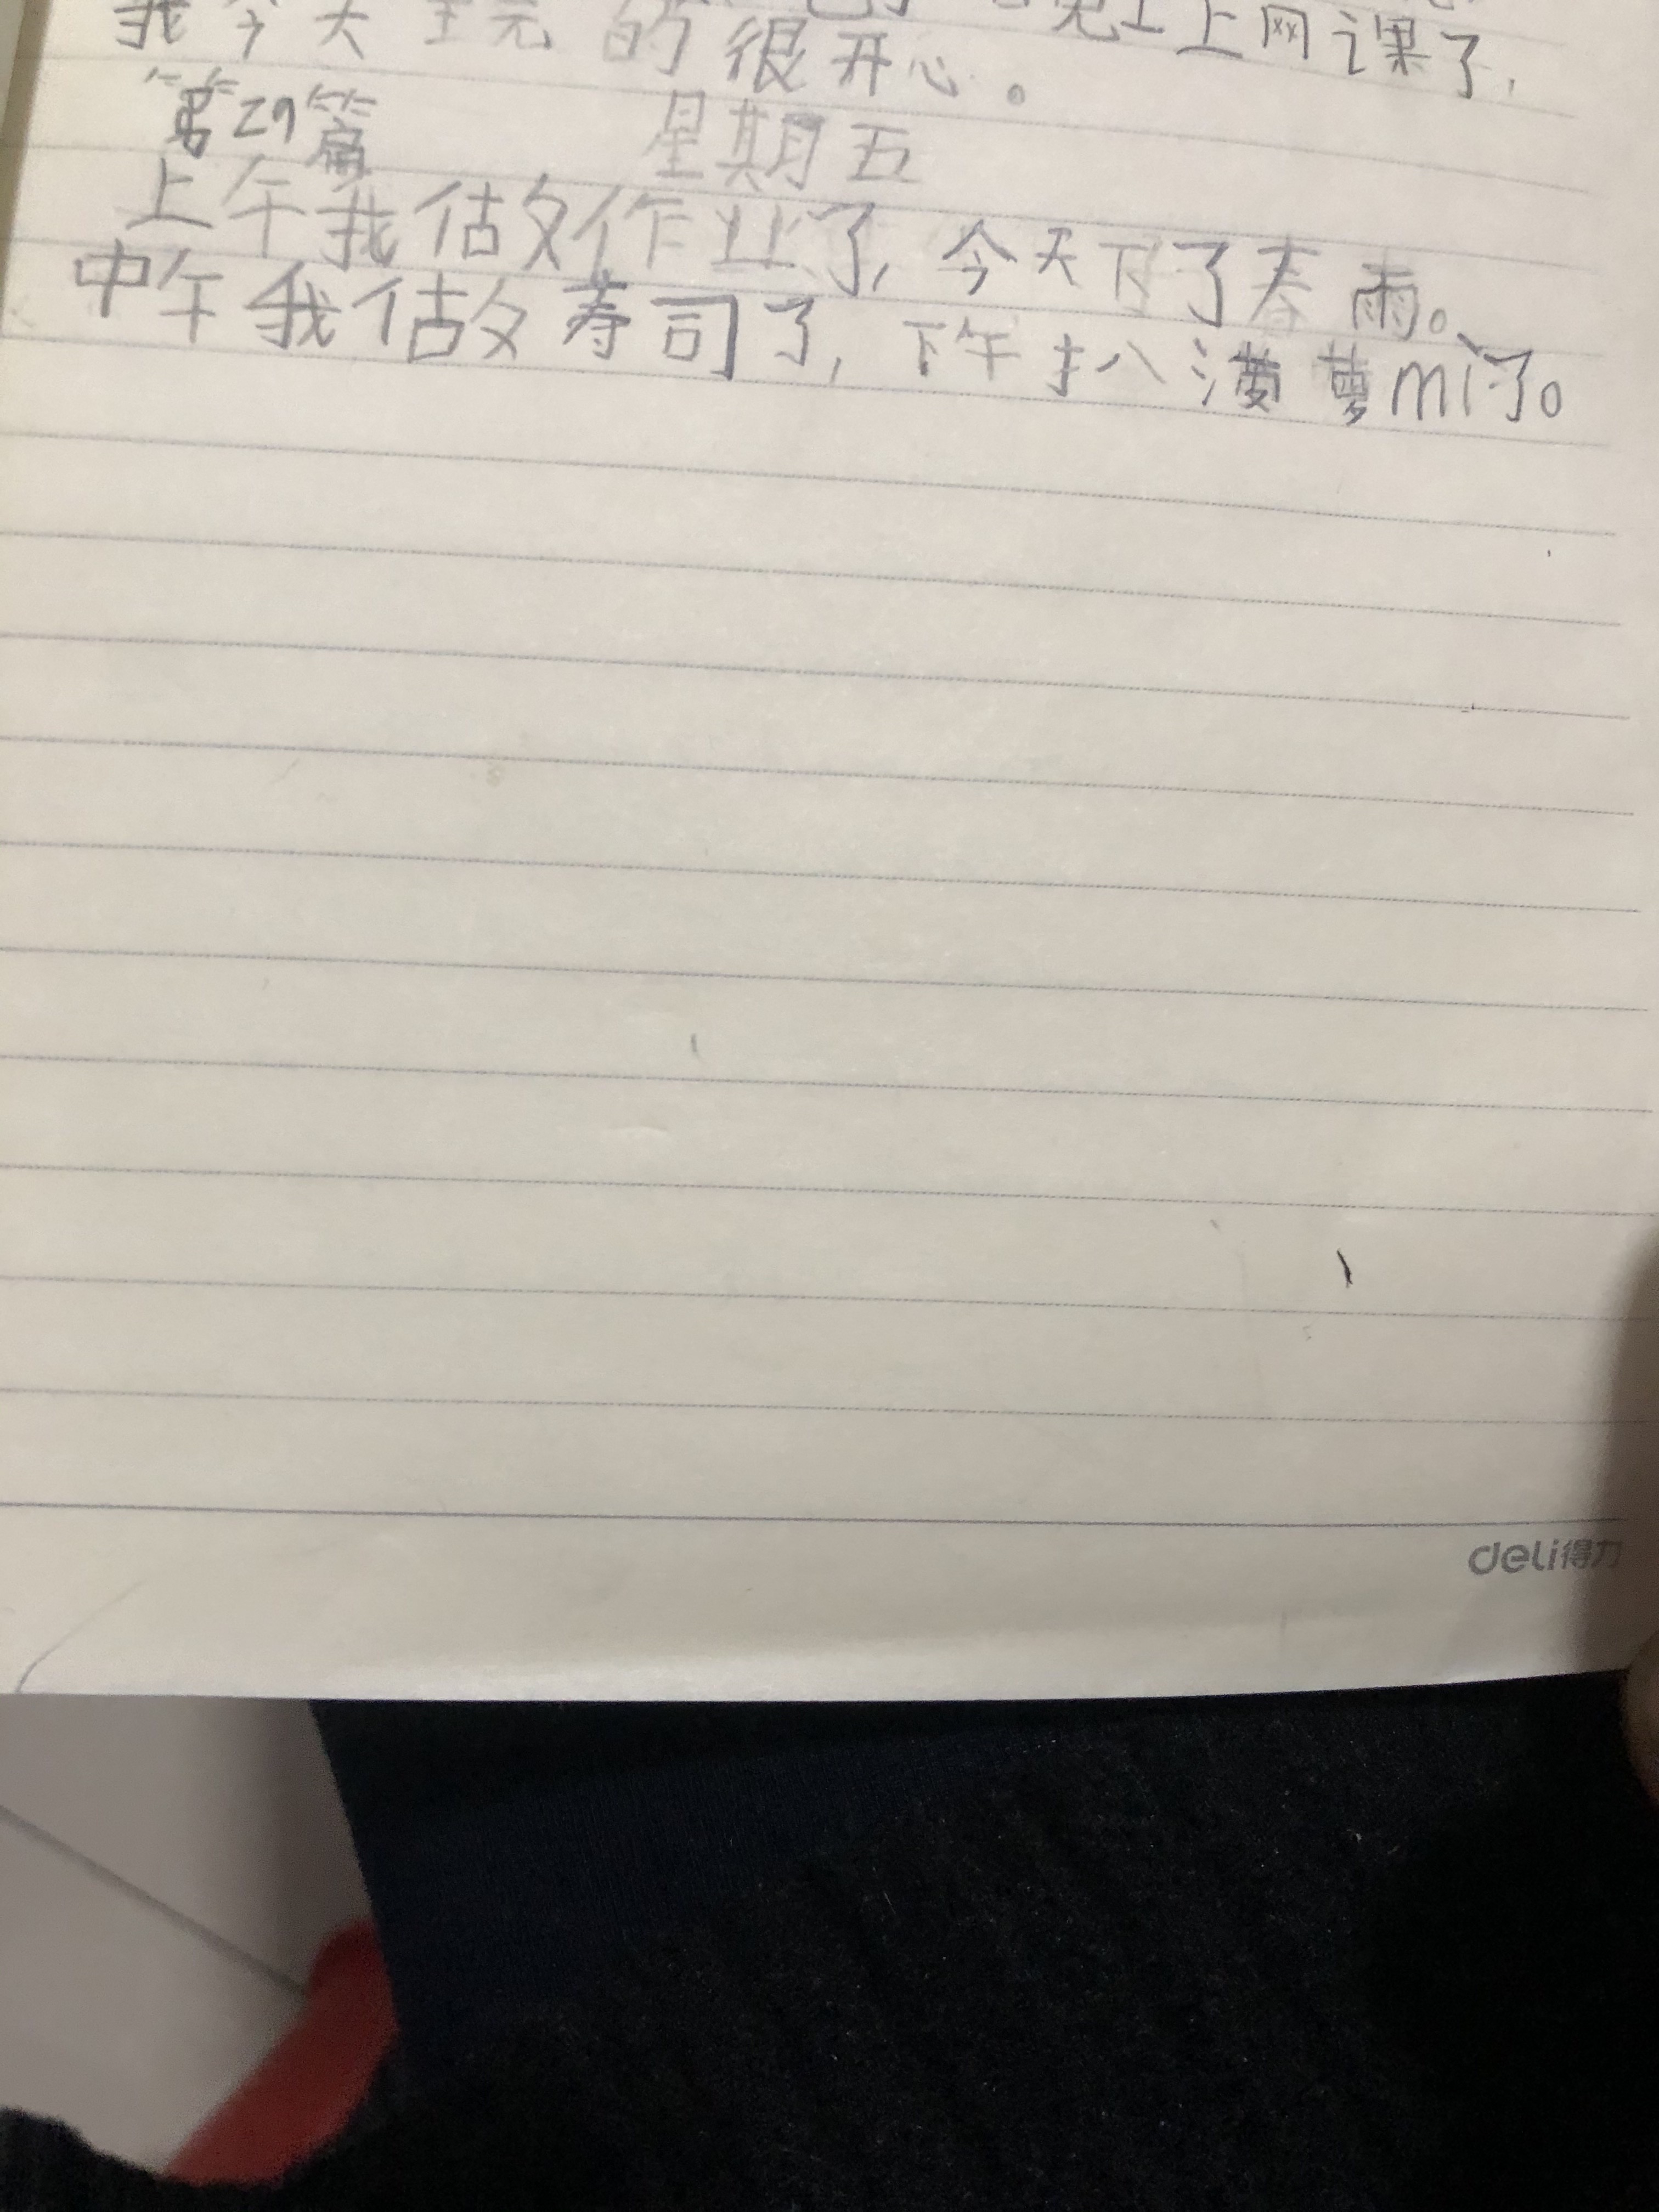 晚上上网课了,
我今天玩的很开心。
第29篇 星期五
上午我做作业了,今天下了春雨。
中午我做寿司了,下午扒菠萝mì了。
deli得力